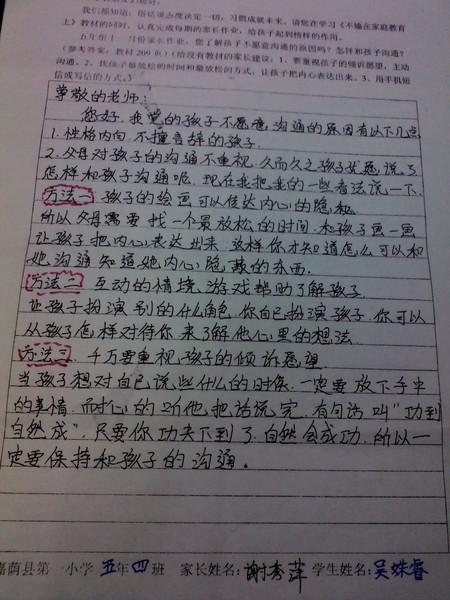 我们都知道:俗话说态度决定一切,习惯成就未来。请您在学习《不输在家庭教育
上》教材的同时,认真完成每期的家长作业,给孩子起到榜样的作用。
五年级十一月份家长作业:您了解孩子不愿意沟通的原因吗?怎样和孩子沟通?
(参考答案:教材209页)(给没有教材的家长建议:1、要重视孩子的倾诉愿望,主动
沟通。2、找孩子最放松的时间和最放松的方式,让孩子把内心表达出来。3、用手机短
信或写信的方式。)
尊敬的老师:
您好,我觉的孩子不愿意沟通的原因有以下几点
1.性格内向,不擅言辞的孩子.
2.父母对孩子的沟通不重视,久而久之孩子就愿说了
怎样和孩子沟通呢,现在我把我的一些看法说一下.
方法一 孩子的绘画可以传达内心的隐私
所以父母需要找一个最放松的时间,和孩子画一画
让孩子把内心表达出来,这样你才知道怎么可以和
她沟通知道她内心隐藏的东西.
方法二 互动的情境,游戏帮助了解孩子
让孩子扮演别的什么角色,你自己扮演孩子,你可以
从孩子怎样对待你来了解他心里的想法
方法三. 千万要重视孩子的倾诉愿望
当孩子想对自己说些什么的时候,一定要放下手中
的事情,耐心的听他把话说完,有句话叫“功到
自然成”,只要你功夫下到了,自然会成功,所以一
定要保持和孩子的沟通。
嘉荫县第一小学 五年四班 家长姓名:谢秀萍 学生姓名:吴姝睿